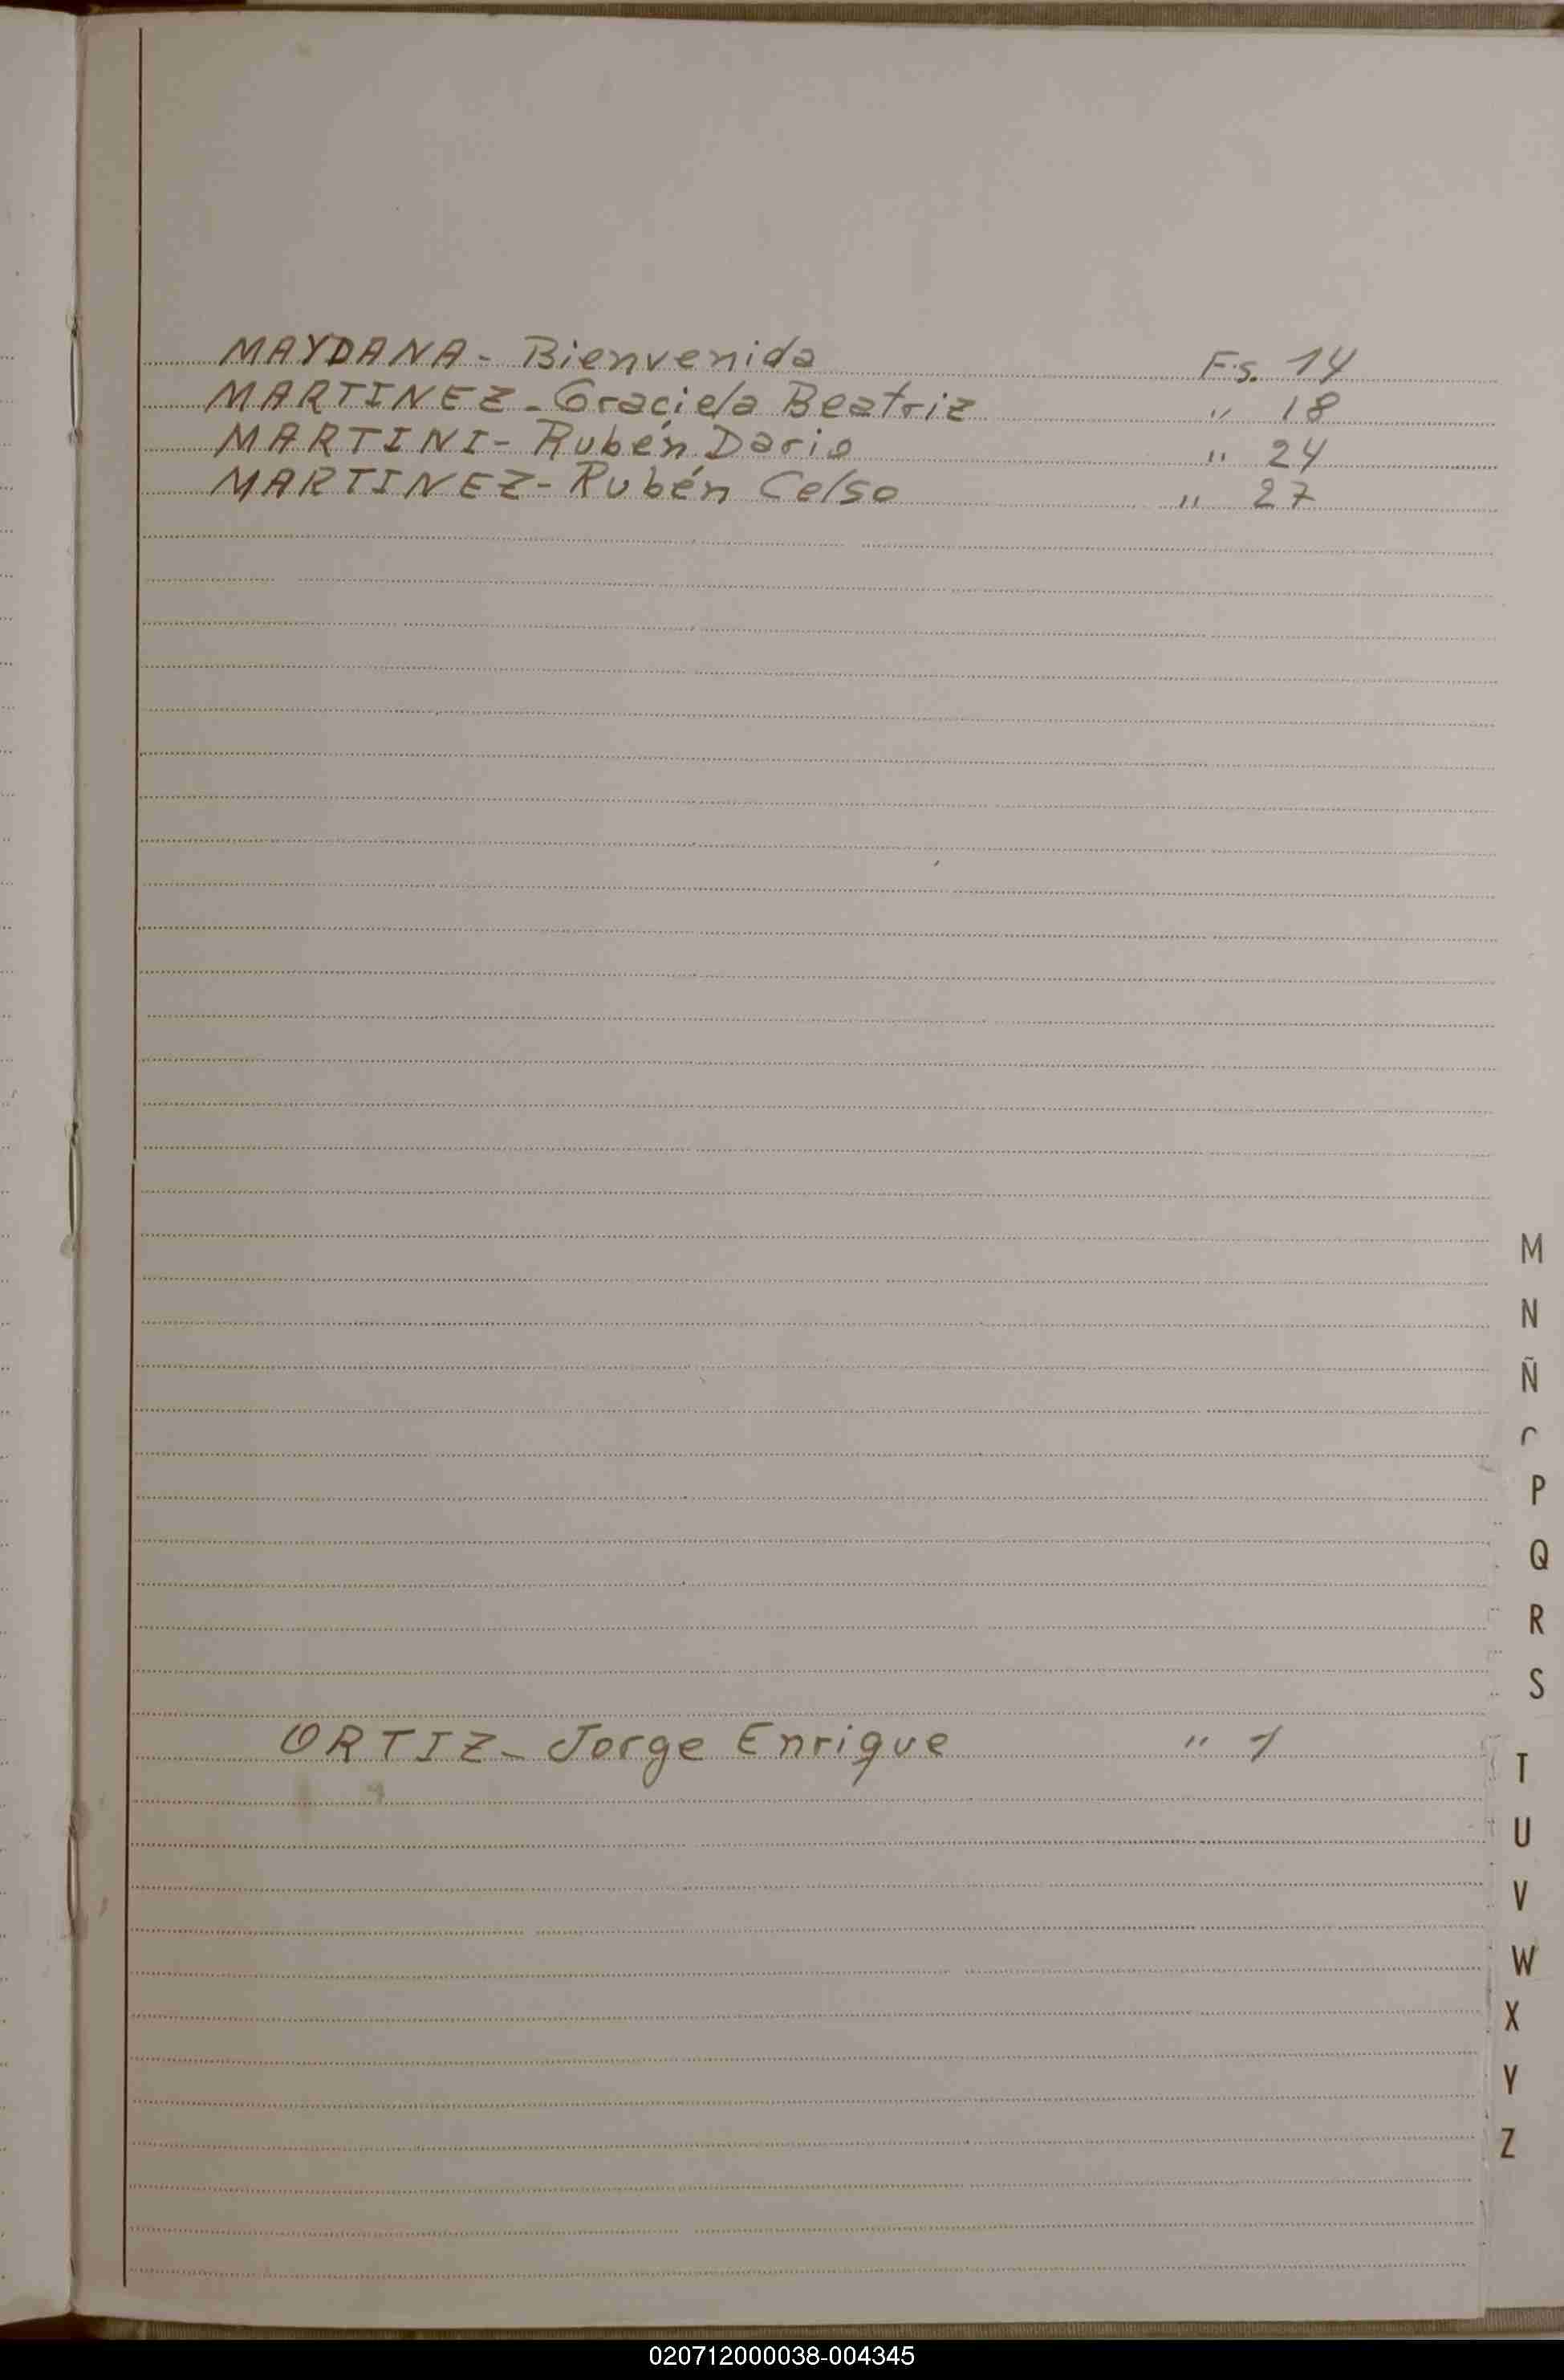 MAYDANA - Bienvenida Fs. 14
MARTINEZ - Graciela Beatriz " 18
MARTINI - Rubén Dario " 24
MARTINEZ - Rubén Celso " 27
M
N
Ñ
P
Q
R
S
ORTIZ - Jorge Enrique " 1
T
U
V
W
X
Y
Z
020712000038-004345